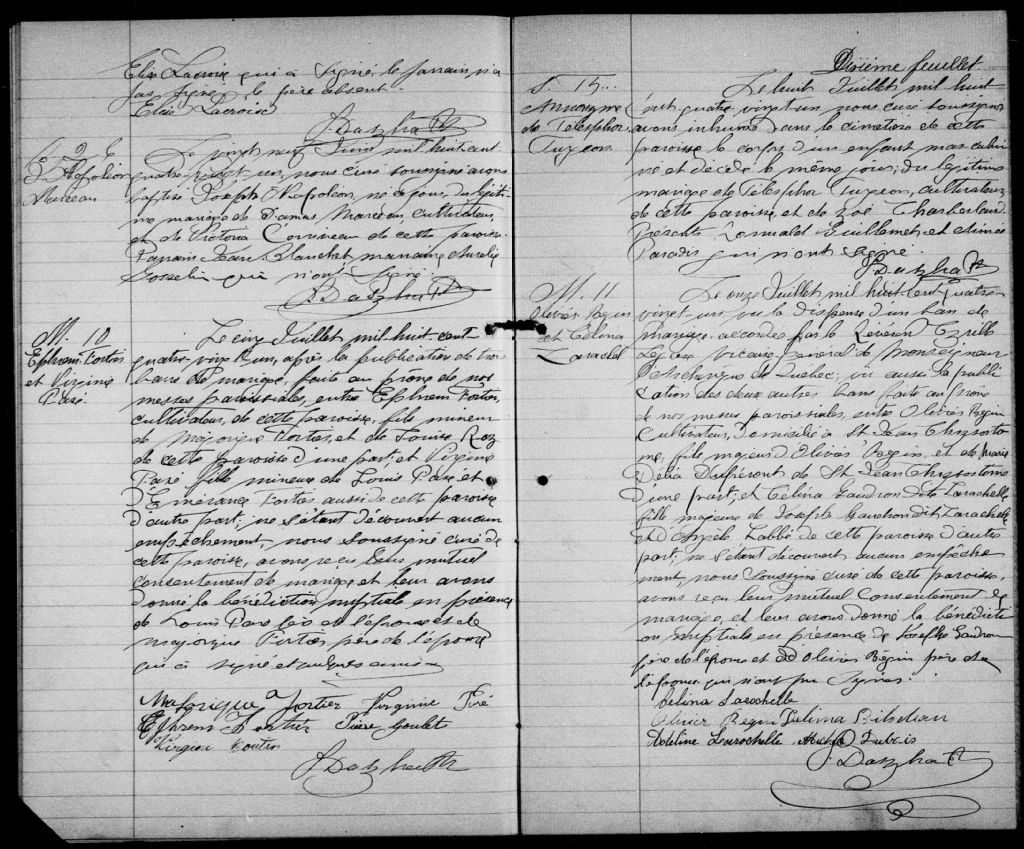 Elise Lacroix qui a signé, le parrain n'a
pas signé, le père absent.
Elise Lacroix
B. 26
J. Napoléon
Marceau
Le vingt neuf Juin mil huit cent
quatre vingt un, nous curé soussigné avons
baptisé Joseph Napoléon, né ce jour, du légiti-
me mariage de Damas Marceau, cultivateur,
et de Victoria Corriveau de cette paroisse.
Parrain Jean Blanchet, marraine Aurelie
Gosselin qui n'ont signé.
M. 10
Ephrem Fortier
et Virginie
Paré.
Le cinq Juillet mil huit cent
quatre vingt un, après la publication de trois
bans de mariage, faite au prône de nos
messes paroissiales, entre Ephrem Fortier,
cultivateur, de cette paroisse, fils mineur
de Majorique Fortier, et de Louise Roz
de cette paroisse d'une part; et Virginie
Paré fille mineure de Louis Paré et
d'Emérance Fortier aussi de cette paroisse
d'autre part; ne s'étant découvert aucun
empêchement, nous soussigné curé de
cette paroisse, avons reçu leur mutuel
consentement de mariage et leur avons
donné la bénédiction nuptiale en présence
de Louis Paré père de l'épouse et de
Majorique Fortier père de l'époux
qui a signé et quelques amis
Majorique Fortier Virginie Paré
Ephrem Fortier Pierre Goulet
Virginie Fortin
Dixième feuillet
S. 15
Annonyme
de Télésphor
Turgeon
Le huit Juillet mil huit
cent quatre vingt un nous curé soussigné
avons inhumé dans le cimetière de cette
paroisse le corps d'un enfant mas culin
né et décédé le même jour, du légitime
mariage de Télesphor Turgeon, cultivateur
de cette paroisse, et de Zoé Chamberland.
Présents Romuald Guillemet et Aimée
Paradis qui n'ont signé
M. 11
Olivier Bégin
et Célina
Larochel
Le onze Juillet mil huit cent quatre
vingt un vu la dispense d'un ban de
mariage accordée par le Révérend Cyrille
Légaré Vicaire Général de Monseigneur
l'Archevêque de Québec; vu aussi la publi
cation des deux autres bans faite au prône
de nos messes paroissiales, entre Olivier Bégin
Cultivateur, domicilié à St Jean Chrysosto
me, fils majeur d'Olivier Bégin, et de Marie
Délia Dufresne de St Jean Chrysostome
d'une part; et Célina Gaudron dite Larochelle
fille majeure de Joseph Gaudron dit Larochelle
et d'Angèle Labbé de cette paroisse d'autre
part; ne s'étant découvert aucun empêche
ment, nous soussigné curé de cette paroisse,
avons reçu leur mutuel consentement de
mariage, et leur avons donné la bénédicti
on nuptiale en présence de Joseph Gaudron
père de l'épouse et d'Olivier Bégin père de
l'époux qui n'ont pu signer.
Célina Larochelle
Olivier Bégin Délima Bilodeau
Adeline Larochelle